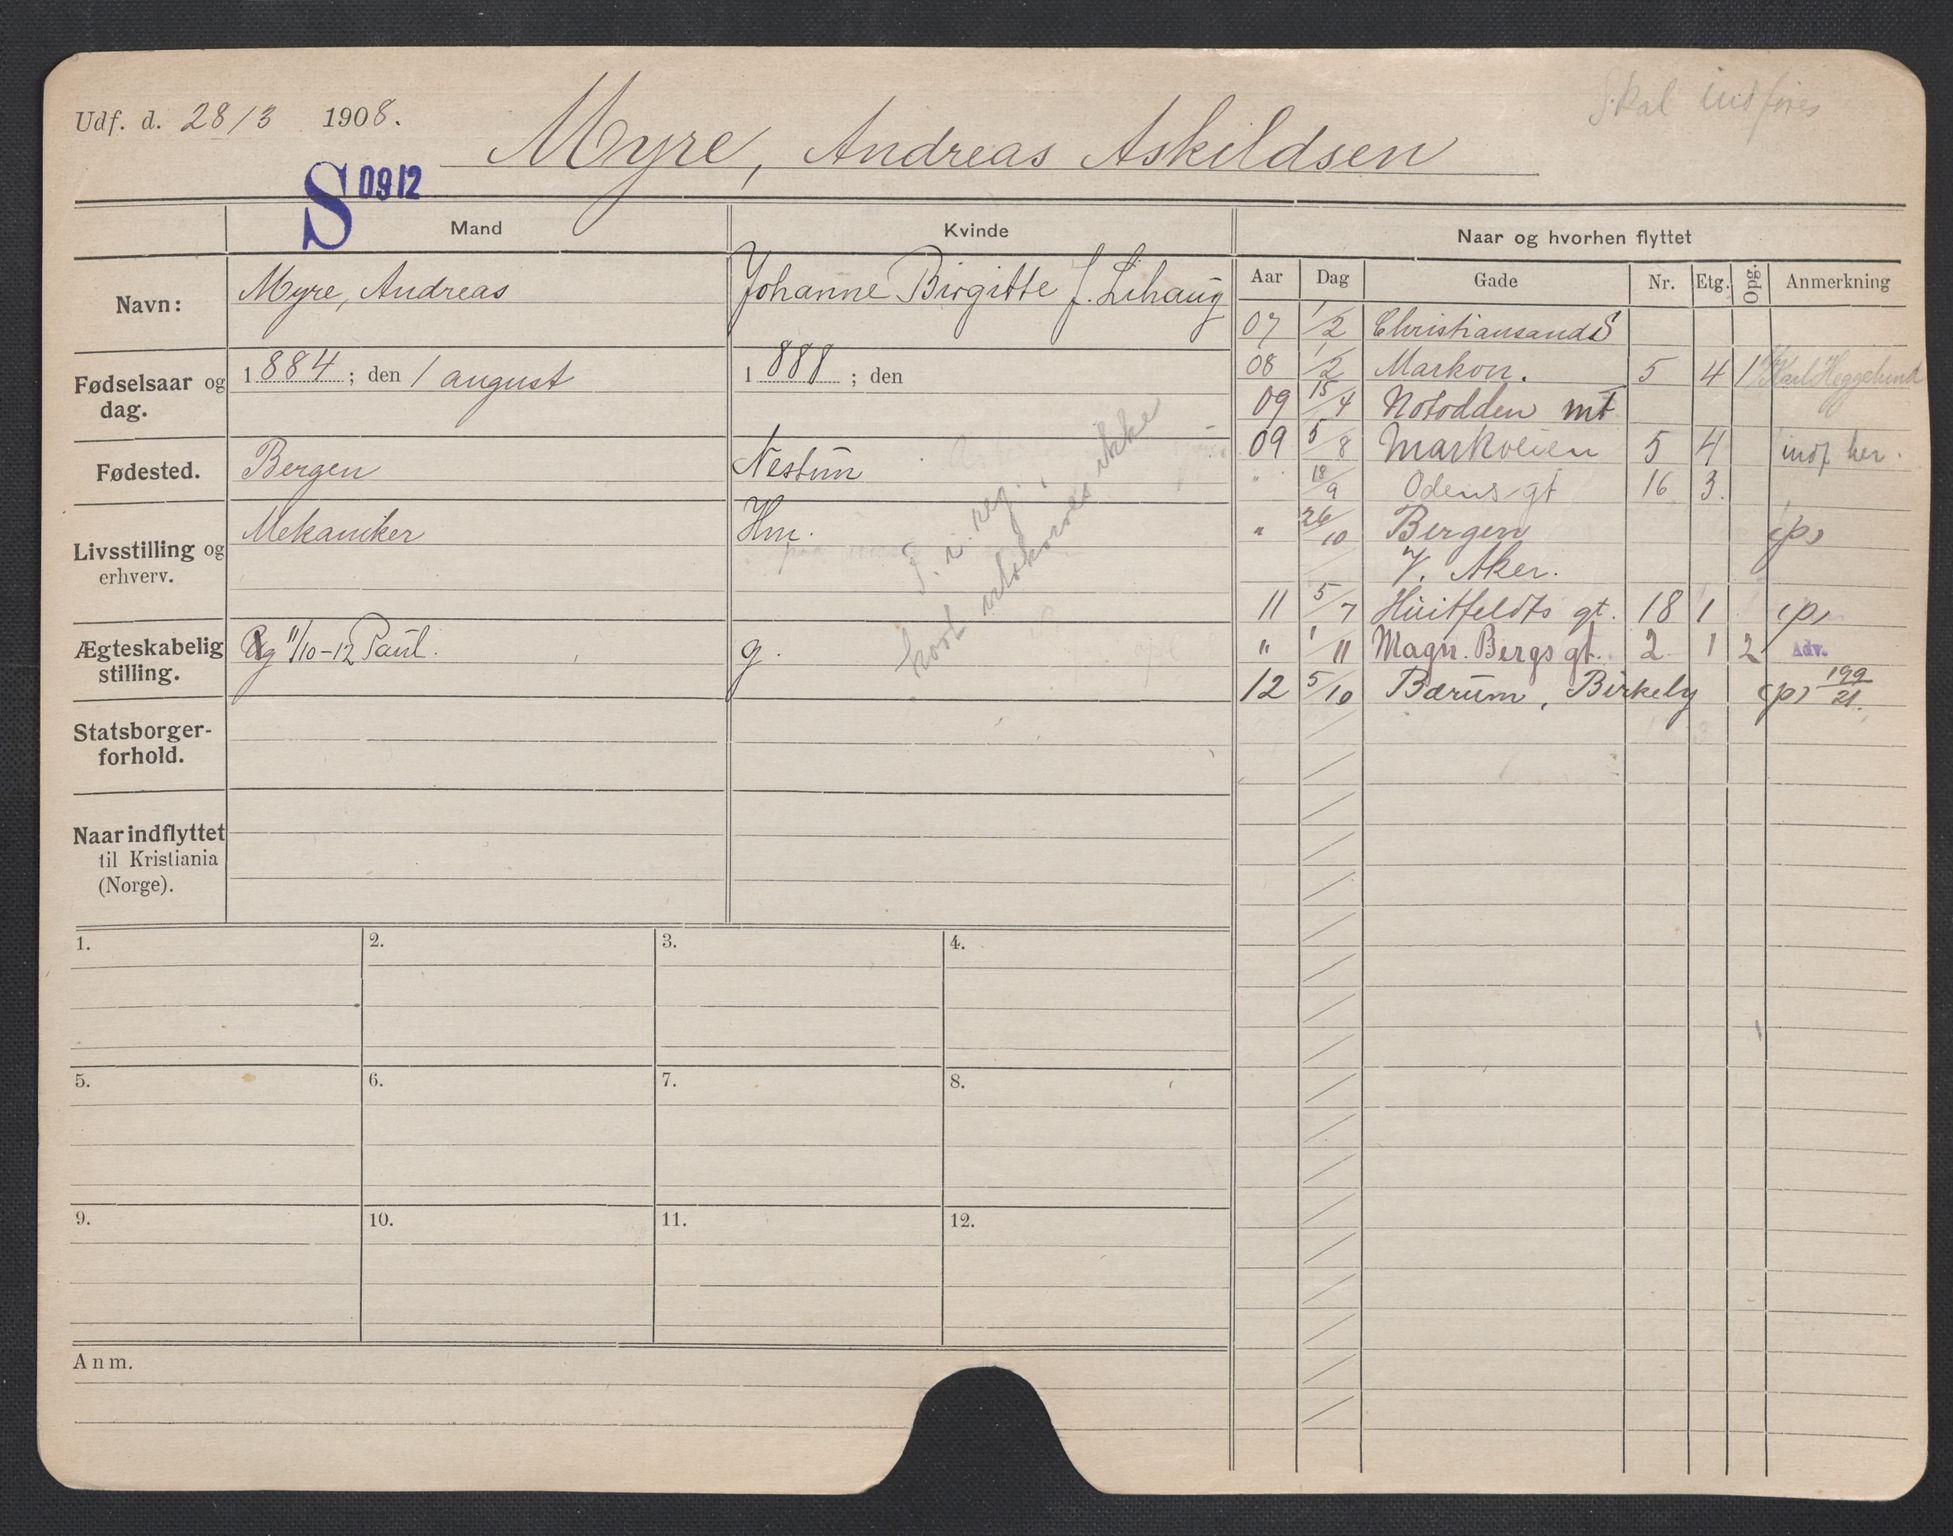 Udf. d. 28/3 1908.
Skal indføres
Myre, Andreas Askildsen
S 0912
Mand
Kvinde
Naar og hvorhen flyttet
Aar Dag Gade Nr. Etg. Opg. Anmerkning
Navn: Myre, Andreas Johanne Birgitte f. Lihaug
Fødselsaar og dag. 1884; den 1 august 1888; den
Fødested. Bergen Nestun
Livsstilling og erhverv. Mekaniker Hm.
Ægteskabelig stilling. g 11/10-12 Paul. g.
Statsborger-
forhold.
Naar indflyttet
til Kristiania
(Norge).
07 1/2 Christiansand S
08 1/2 Markvn. 5 4 1 Karl Heggelund
09 15/4 Notodden mt
09 5/8 Markveien 5 4 indf her.
" 18/9 Odens gt 16 3.
" 26/10 Bergen (p)
V. Aker.
11 5/7 Huitfeldts gt. 18 1 (p)
" 1/11 Magn. Bergs gt. 2 1 2 Adv.
12 5/10 Bærum, Birkely (p) 199/21.
ikke
1. 2. 3. 4.
5. 6. 7. 8.
9. 10. 11. 12.
Anm.